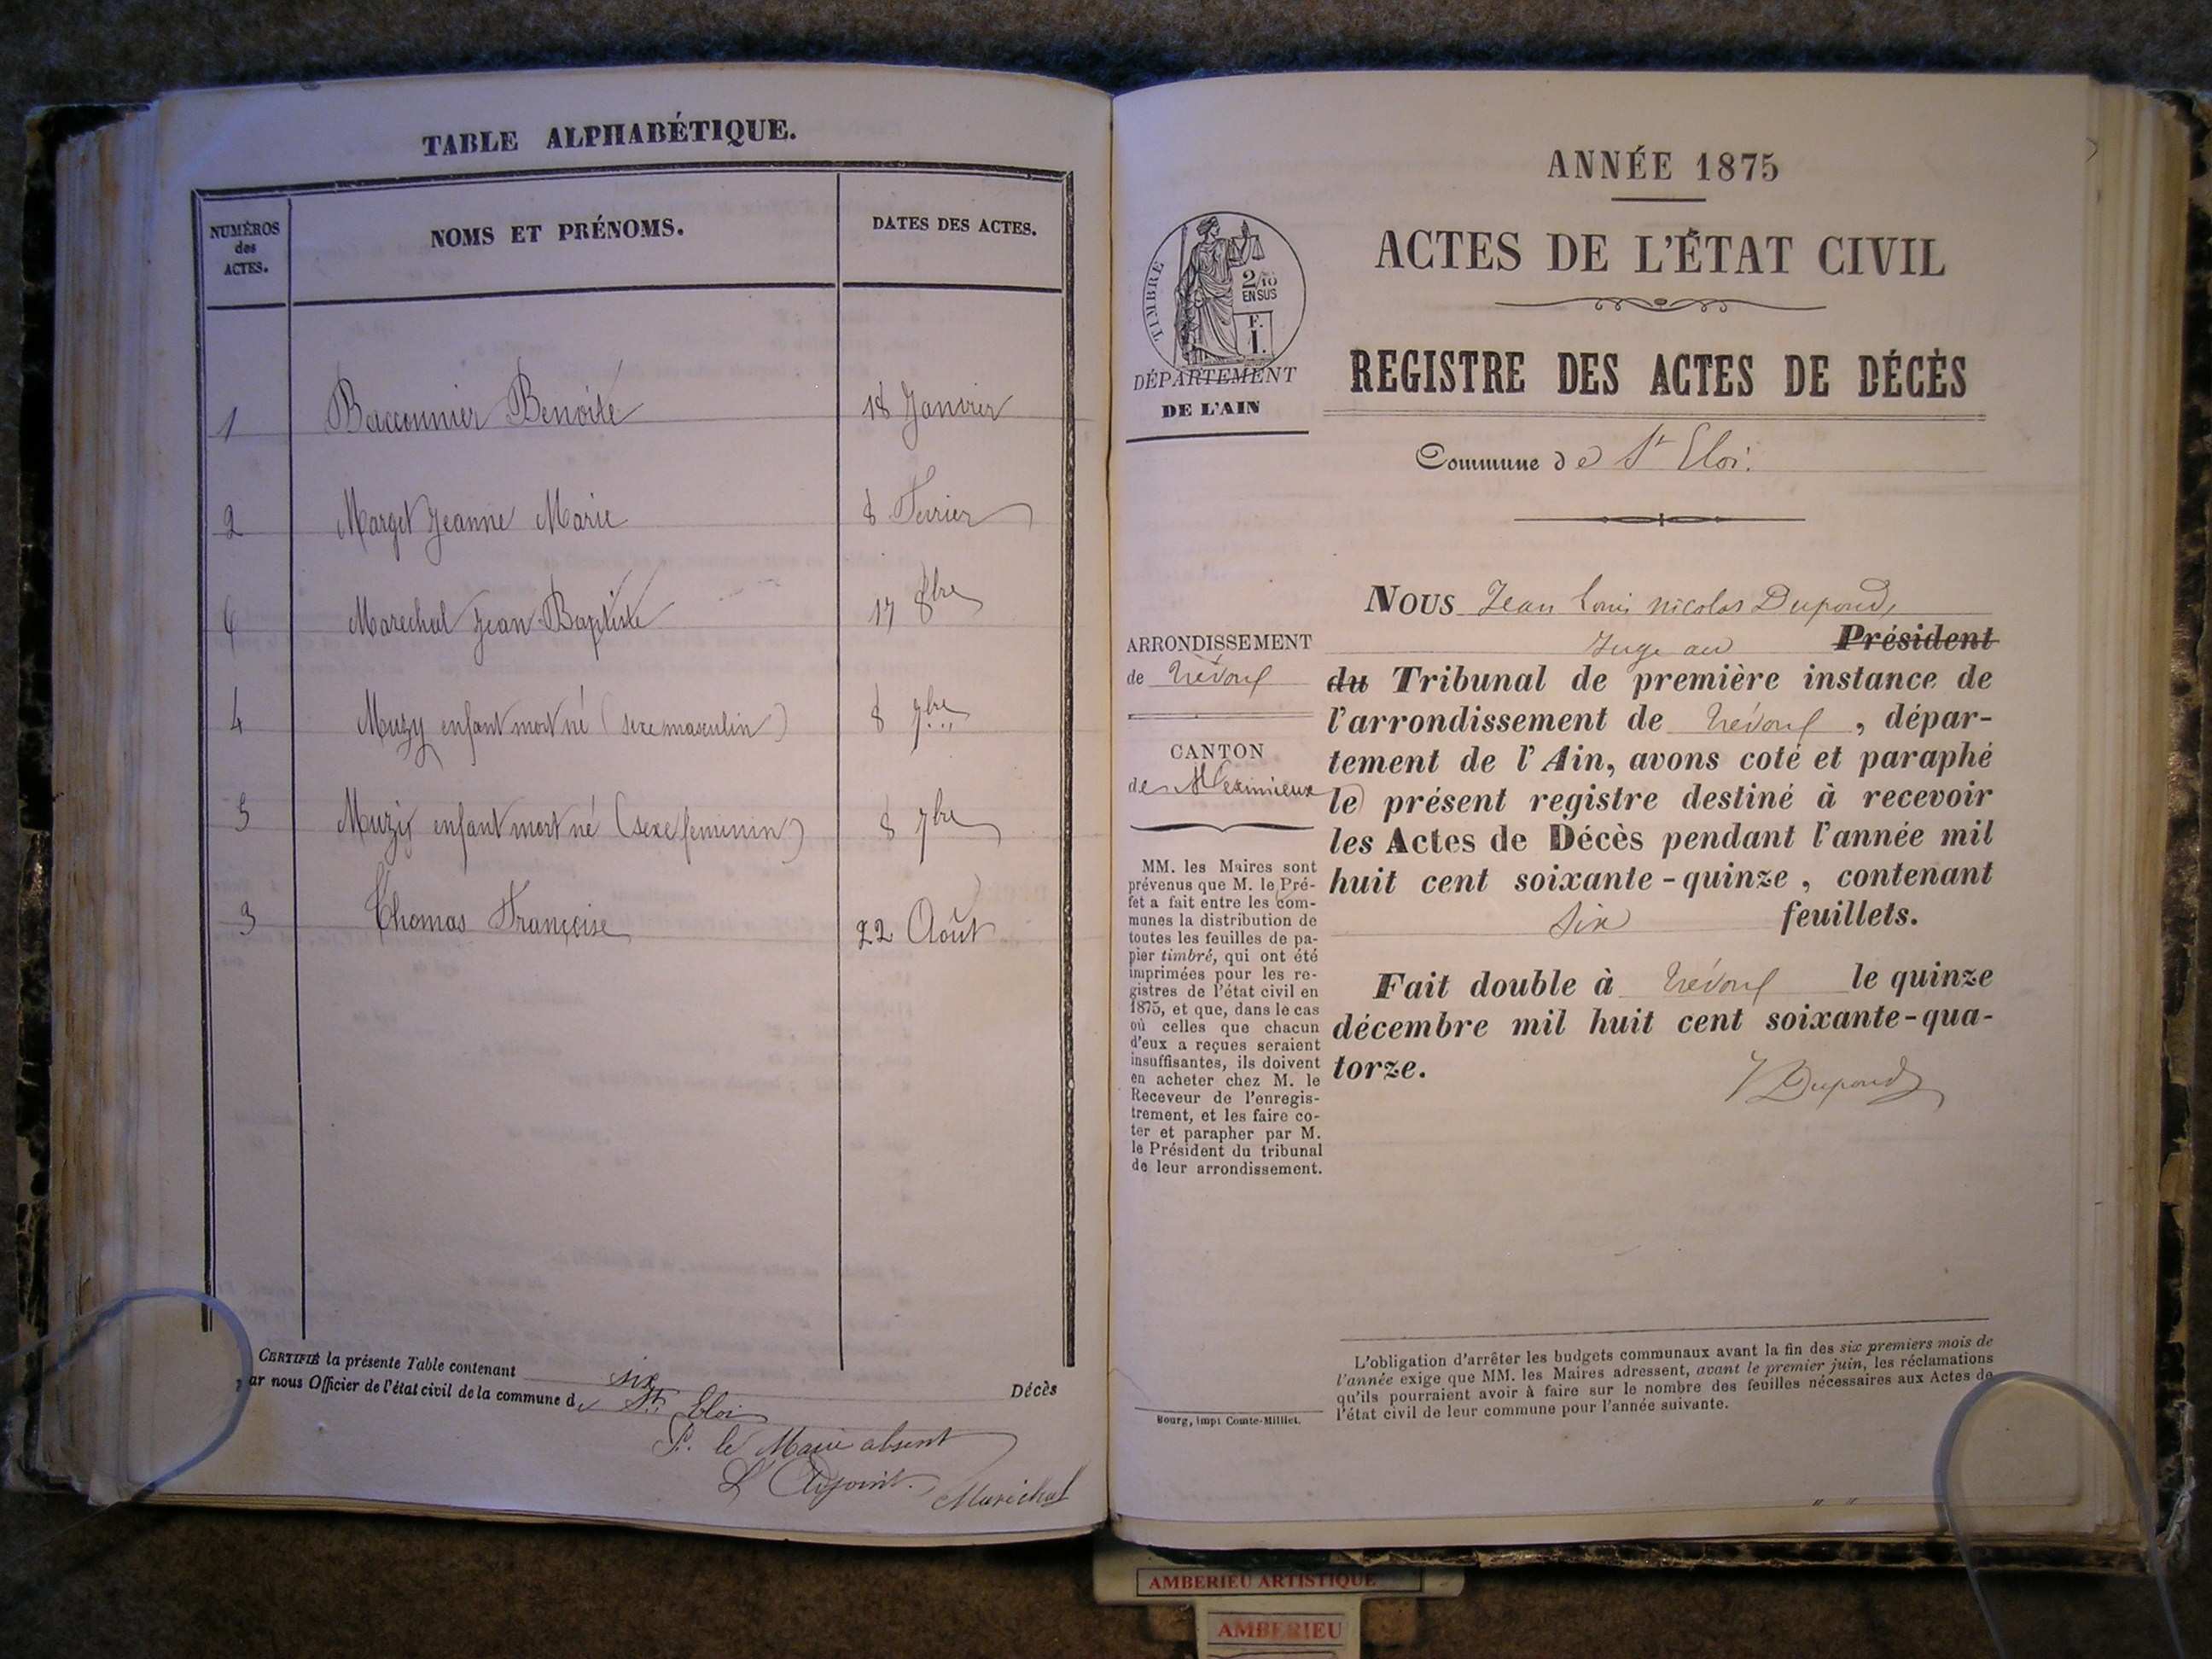 TABLE ALPHABÉTIQUE.
NUMÉROS
des
ACTES.
NOMS ET PRÉNOMS.
DATES DES ACTES.
1 Bacconnier Benoite 18 Janvier
2 Marget Jeanne Marie 8 Fevrier
6 Marechal Jean Baptiste 17 8bre
4 Muzy enfant mort né (sexe masculin) 8 7bre
5 Muzy enfant mort né (sexe feminin) 8 7bre
3 Thomas Françoise 22 Août
CERTIFIÉ la présente Table contenant six Décès
par nous Officier de l'état civil de la commune de St Eloi
P. le Maire absent
L'Adjoint. Maréchal
ANNÉE 1875
ACTES DE L'ÉTAT CIVIL
REGISTRE DES ACTES DE DÉCÈS
TIMBRE
2/10
EN SUS
F.
1.
DÉPARTEMENT
DE L'AIN
Commune de St Eloi.
ARRONDISSEMENT
de Trévoux
CANTON
de Meximieux
MM. les Maires sont
prévenus que M. le Pré-
fet a fait entre les com-
munes la distribution de
toutes les feuilles de pa-
pier timbré, qui ont été
imprimées pour les re-
gistres de l'état civil en
1875, et que, dans le cas
où celles que chacun
d'eux a reçues seraient
insuffisantes, ils doivent
en acheter chez M. le
Receveur de l'enregis-
trement, et les faire co-
ter et parapher par M.
le Président du tribunal
de leur arrondissement.
NOUS Jean Louis Nicolas Dupond,
Juge au Président
du Tribunal de première instance de
l'arrondissement de Trévoux, dépar-
tement de l'Ain, avons coté et paraphé
le présent registre destiné à recevoir
les Actes de Décès pendant l'année mil
huit cent soixante-quinze, contenant
six feuillets.
Fait double à Trévoux le quinze
décembre mil huit cent soixante-qua-
torze.
Dupond
L'obligation d'arrêter les budgets communaux avant la fin des six premiers mois de
l'année exige que MM. les Maires adressent, avant le premier juin, les réclamations
qu'ils pourraient avoir à faire sur le nombre des feuilles nécessaires aux Actes de
l'état civil de leur commune pour l'année suivante.
Bourg, impr Comte-Milliet.
AMBERIEU ARTISTIQUE
AMBERIEU